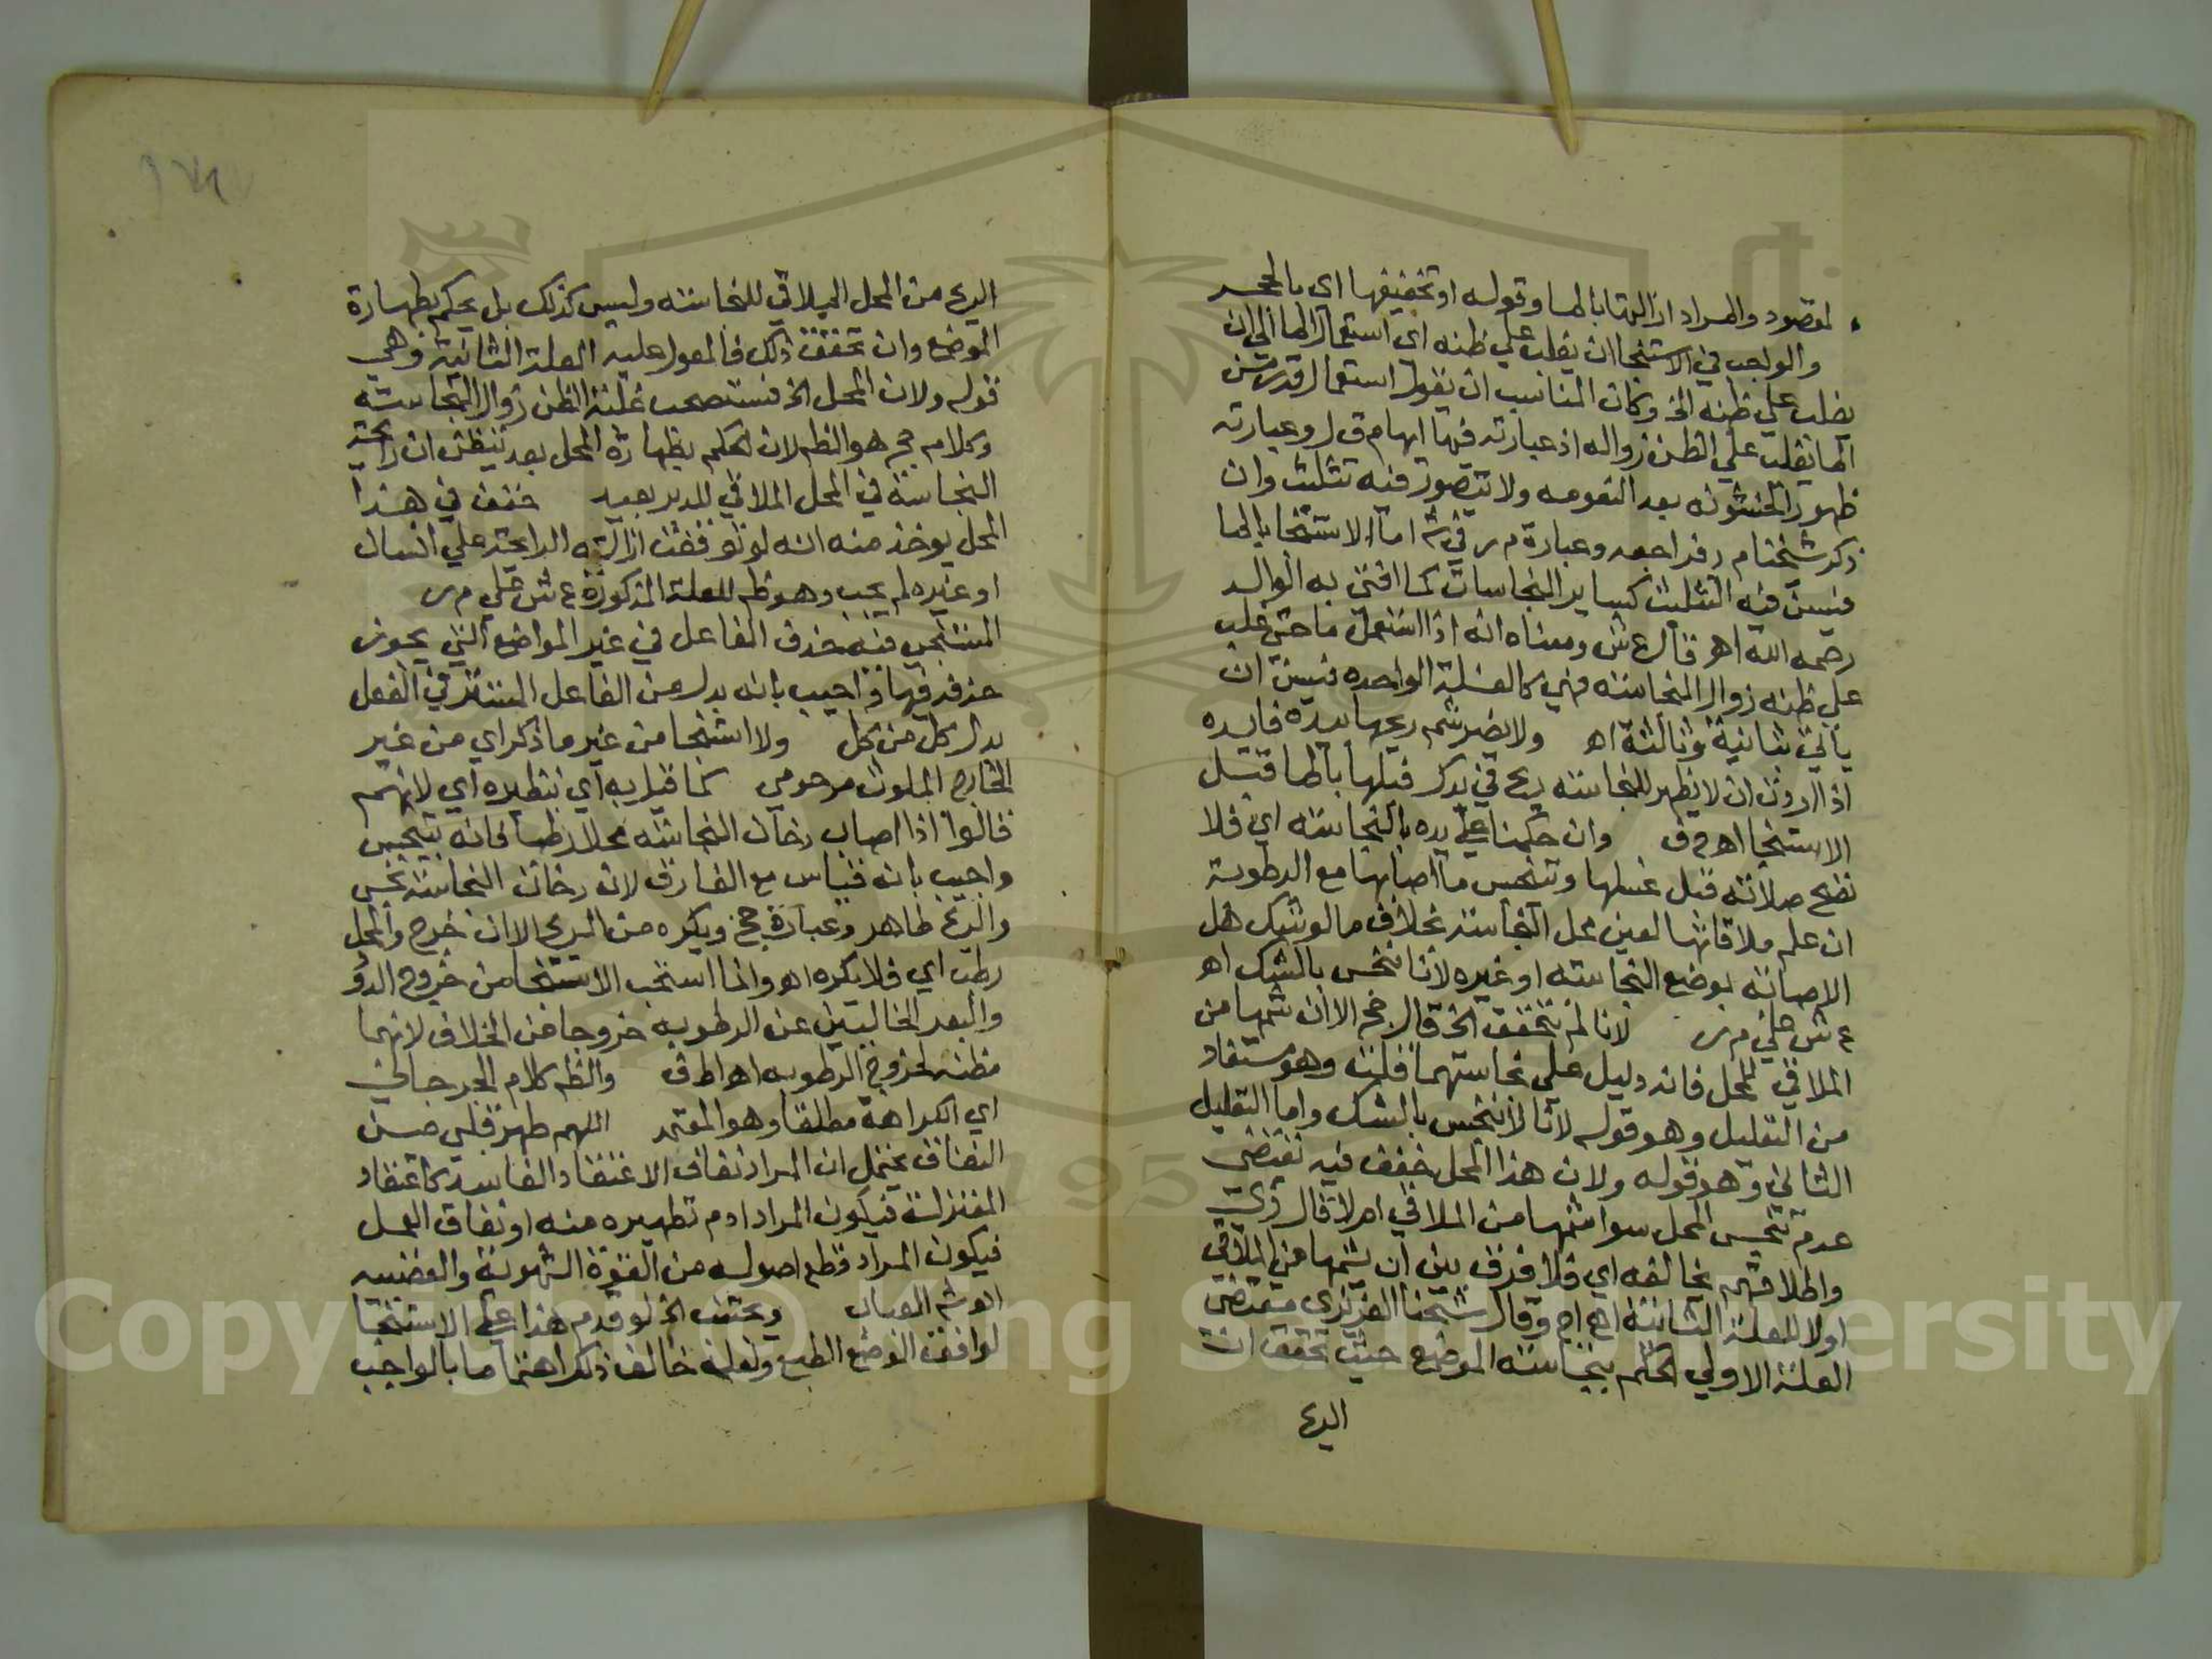 لمقصود والمراد ازالتها بالما وقوله او تخفيفها اي بالحجر
والواجب في الاستنجا ان يغلب علي ظنه اي استعمال الما الي ان
يغلب علي ظنه الخ وكان المناسب ان يقول استعمال قدر من
الما يغلب علي الظن زواله اذ عبارته فيها ايهام ق ل وعبارته
ظهور الخشونه بعد النعومه ولا يتصور فيه تثليث وان
ذكر شيخنا م ر فراجعه وعبارة م ر في ش اما الاستنجا بالما
فيسن فيه التثليث كساير النجاسات كما افتي به الوالد
رحمه الله اه قال ع ش ومعناه انه اذا استعمل ما حتي غلب
علي ظنه زوال النجاسه فهي كالغسلة الواحده فيسن ان
ياتي بثانية وثالثة اه ولا يضر شم ريحها بيده فايده
اذا اردت ان لا يظهر للنجاسه ريح في يدك فبلها بالما قبل
الاستنجا اه م ف وان حكمنا علي يده بالنجاسه اي فلا
تصح صلاته قبل غسلها وتنجس ما اصابها مع الرطوبة
ان علم ملاقاتها لعين محل النجاسه بخلاف ما لو شك هل
الاصابه بوضع النجاسه او غيره لانا لا ننجس بالشك اه
ع ش علي م ر لانا لم نتحقق الخ قال حج الا ان شمها من
الملاقي للمحل فانه دليل علي نجاستهما قلت وهو مستفاد
من التعليل وهو قوله لانا لا ننجس بالشك واما التعليل
الثاني وهو قوله ولان هذا المحل خفف فيه يقتضي
عدم تنجس المحل سوا شمها من الملاقي ام لا قال زي
واطلاقهم يخالفه اي فلا فرق بين ان يشمها من الملاقي
اولا للعلة الثانيه اه اج وقال شيخنا العزيزي مقتضي
العلة الاولي الحكم بنجاسه الموضع حيث تحقق ان
الريح
الريح من المحل الملاقي للنجاسه وليس كذلك بل يحكم بطهارة
الموضع وان تحقق ذلك فالمعول عليه العلة الثانية وهي
قوله ولان المحل الخ فنستصحب غلبة الظن زوال النجاسه
وكلام حج هو الظم لان الحكم بطهارة المحل بعد تيقن ان رايحة
النجاسه في المحل الملاقي لليد بعيد خفف في هذا
المحل يوخذ منه انه لو توقفت ازالته الرايحة علي اشنان
او غيره لم يجب وهو ظم للعلة المذكورة ع ش علي م ر
المستنجي فيه حذف الفاعل في غير المواضع التي يجوز
حذفه فيها واجيب بانه بدل من الفاعل المستتر في الفعل
بدل كل من كل ولا استنجا من غير ما ذكر اي من غير
الخارج الملوث مرحومي كما قيل به اي بنظيره اي لانهم
قالوا اذا اصاب دخان النجاسه محلا رطبا فانه يتنجس
واجيب بانه قياس مع الفارق لان دخان النجاسه نجس
والريح طاهر وعبارة حج ويكره من الريح الا ان خرج والمحل
رطب اي فلا يكره اه وانما استحب الاستنجا من خروج الدود
والبعر الخاليين عن الرطوبه خروجا من الخلاف لانهما
مظنه لخروج الرطوبه اه اط ف والظم كلام الجرجاني
اي الكراهة مطلقا وهو المعتمد اللهم طهر قلبي من
النفاق يحتمل ان المراد نفاق الاعتقاد الفاسد كاعتقاد
المعتزلة فيكون المراد ادم تطهيره منه او نفاق العمل
فيكون المراد قطع اصوله من القوة الشهوية والغضبيه
اه ش العباب ويجتنب الخ لو قدم هذا علي الاستنجا
لوافق الوضع الطبع ولعله خالف ذلك اهتماما بالواجب